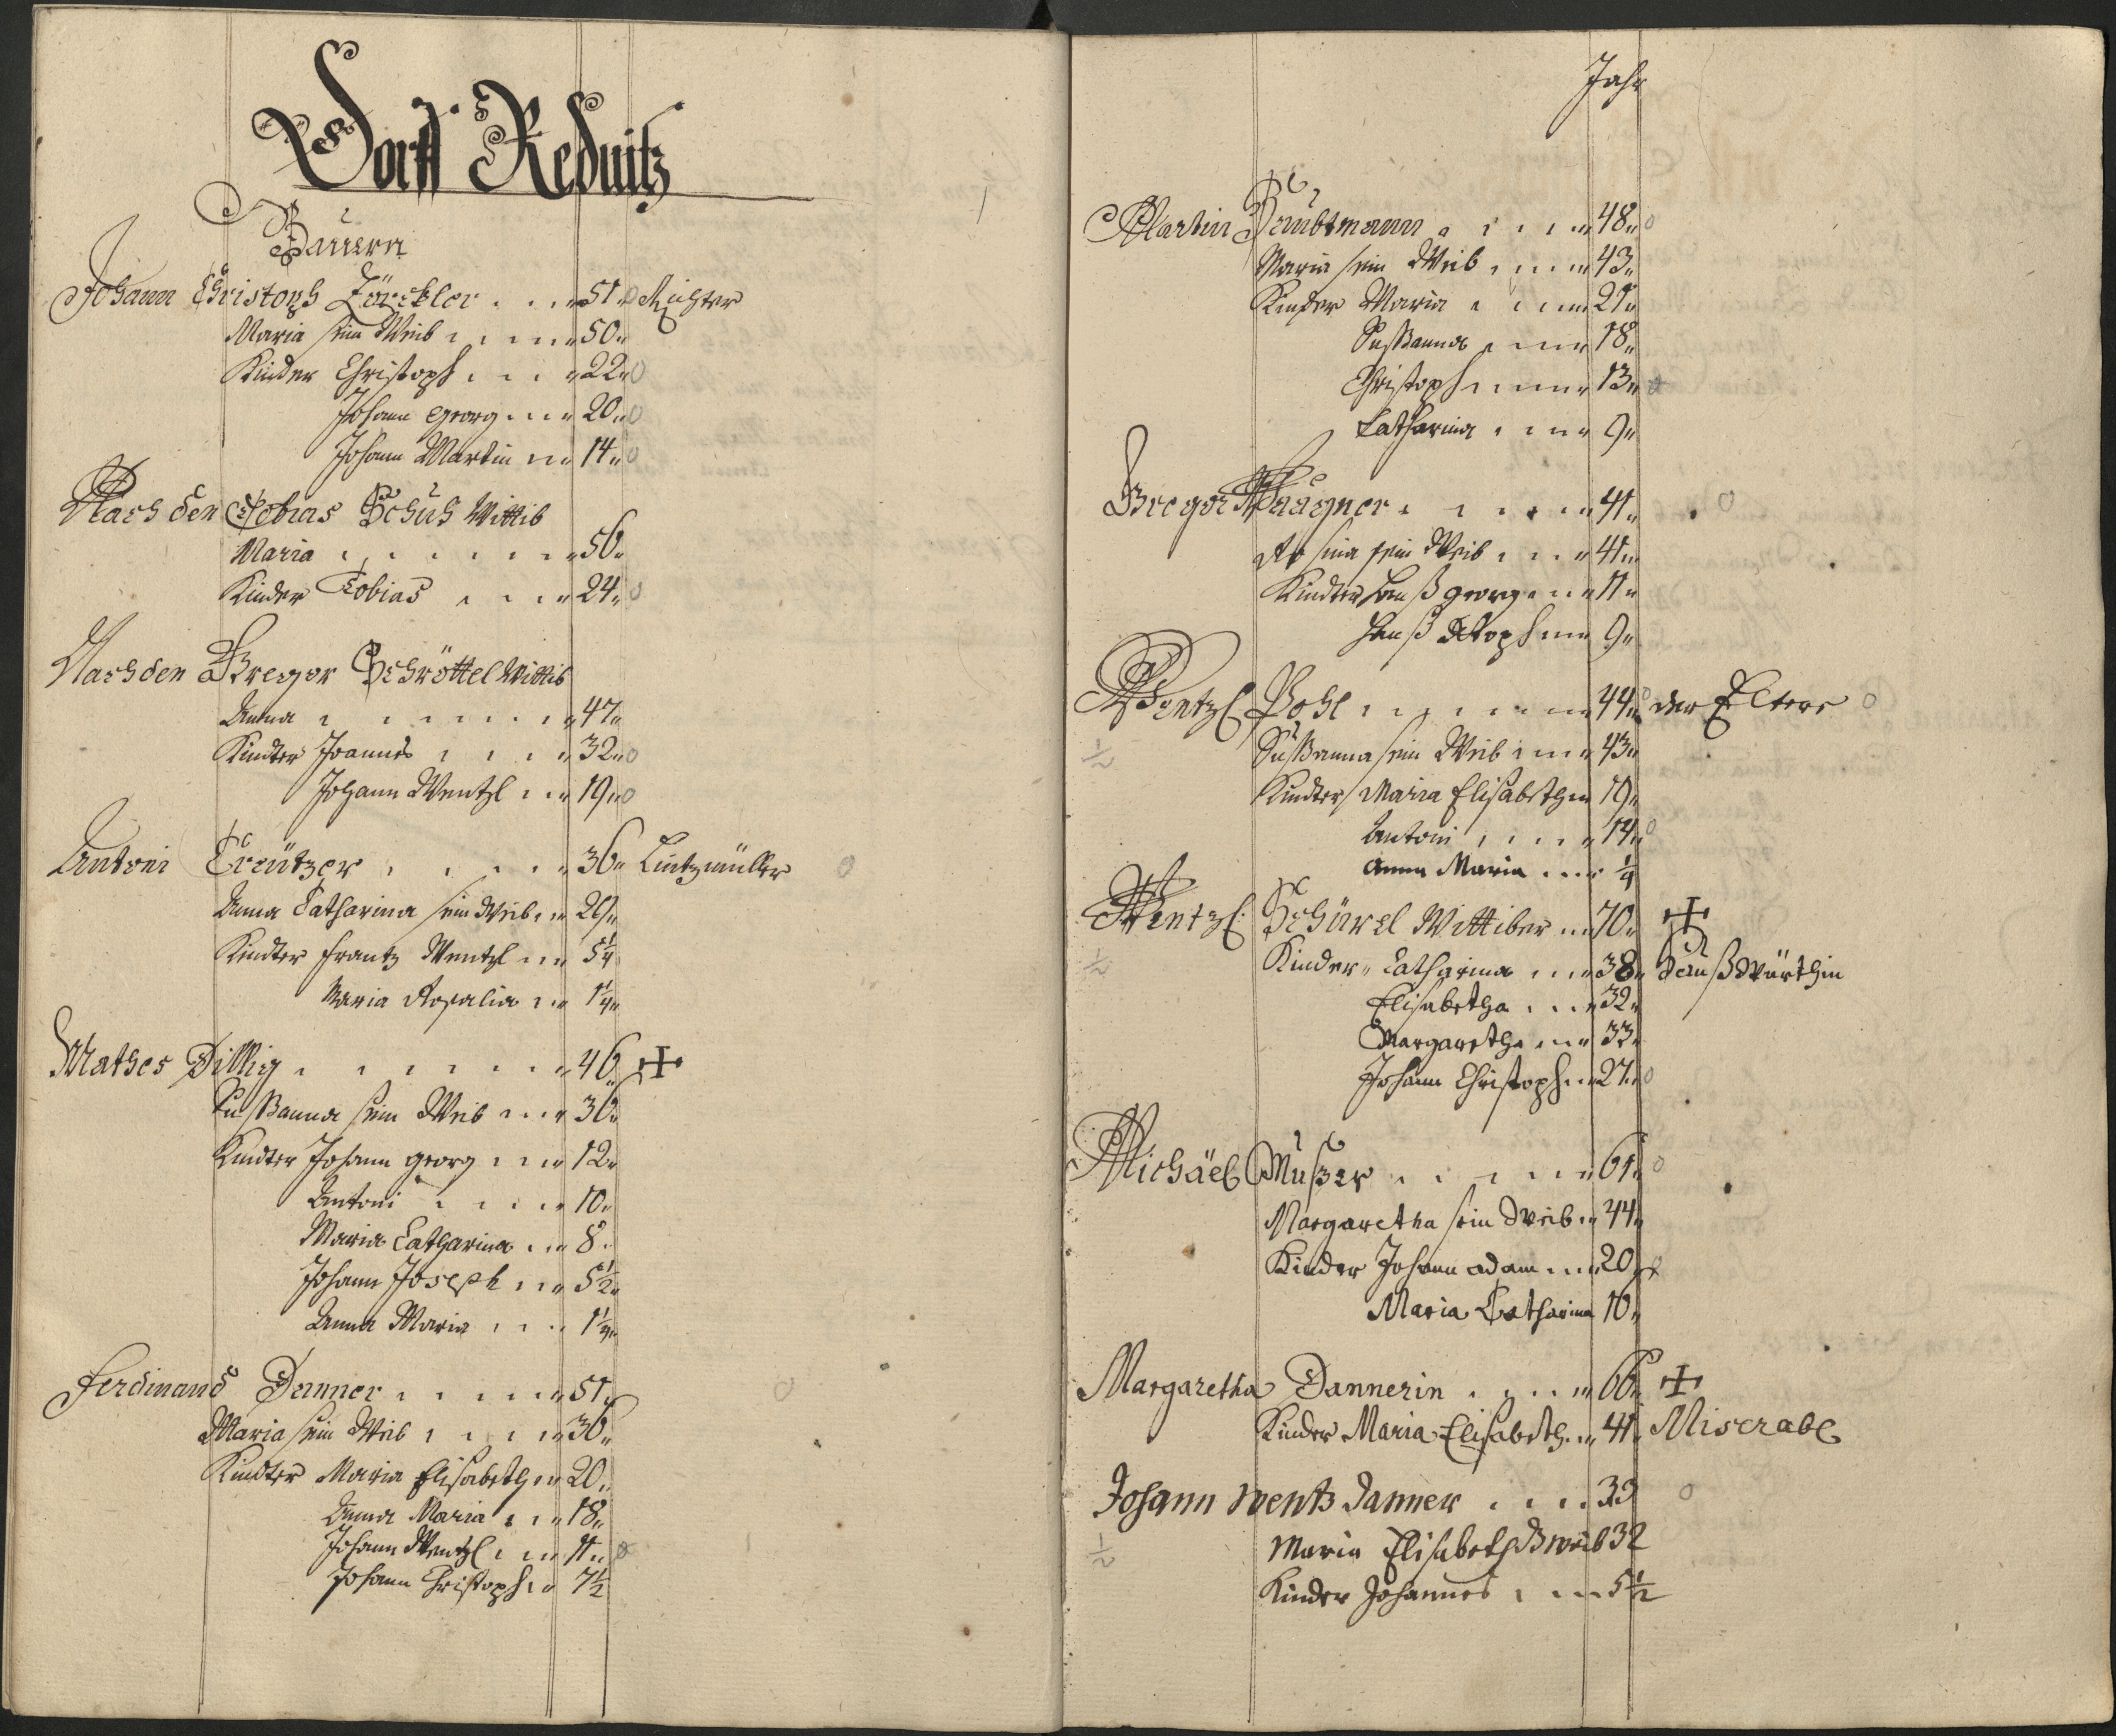 Dorff Rednitz
Bauern
Johann Christoph Zörckler 51 Richter
Maria sein Weib 50
Kinder Christoph 22
Johann Georg 20
Johann Martin 14
Nach den Tobias Schuh Wittib
Maria 56
Kinder Tobias 24
Nach den Gregor Schröttel Wittib
Anna 47
Kindter Joannes 32
Johann Wentzl 19
Antoni Creützer 36 Lintzmüller
Anna Catharina sein Weib 29
Kindter Frantz Wentzl 5¼
Maria Rosalia 1¼
Mathes Dillig 46
Sußanna sein Weib 36
Kindter Johann Georg 12
Antoni 10
Maria Catharina 8
Johann Joseph 5½
Anna Maria 1¼
Ferdinand Danner 51
Maria sein Weib 36
Kindter Maria Elisabeth 20
Anna Maria 18
Johann Wentzl 11
Johann Christoph 7½
Jahr
Martin Haubtmann 48
Maria sein Weib 43
Kinder Maria 21
Sußanna 18
Christoph 13
Catharina 9
Gregor Waagner 41
Rosina sein Weib 41
Kindter Hanß Georg 11
Hanß Stoph 9
Wentzl Pohl 44 der Eltere
½ Sußanna sein Weib 43
Kindter Maria Elisabeth 19
Antoni 14
Anna Maria ¼
Wentzl Schürel Wittiber 70
½ Kinder Catharina 38 Haußwürthin
Elisabetha 32
Margaretha 33
Johann Christoph 27
Michäel Mußer 61
Margaretha sein Weib 44
Kinder Johann Adam 20
Maria Catharina 10
Margaretha Dannerin 66
Kinder Maria Elisabeth 41 Miserabl
Johann Wentz Danner 33
½ Maria Elisabeth S weib 32
Kinder Johannes 5½